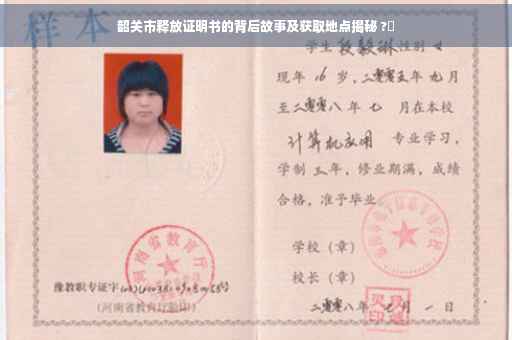 韶关市释放证明书的背后故事及获取地点揭秘?
样本
学生段毅琳性别女
现年16岁,二零零五年九月
至二零零八年七月在本校
计算机应用 专业学习,
学制三年,修业期满,成绩
合格,准予毕业
学校(章)
校长(章)
二零零八年 月一日
河南省教育厅
豫教职专证字
(河南省教育厅验印)